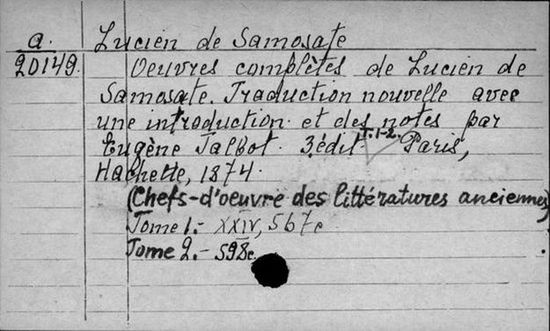 a. Lucien de Samosate
20149. Oeuvres complètes de Lucien de
Samosate. Traduction nouvelle avec
une introduction et des notes par
Eugène Talbot. 3édit. T.1-2. Paris,
Hachette, 1874.
(Chefs-d'oeuvre des littératures anciennes)
Tome 1.- XXIV, 567c
Tome 2.- 598c.